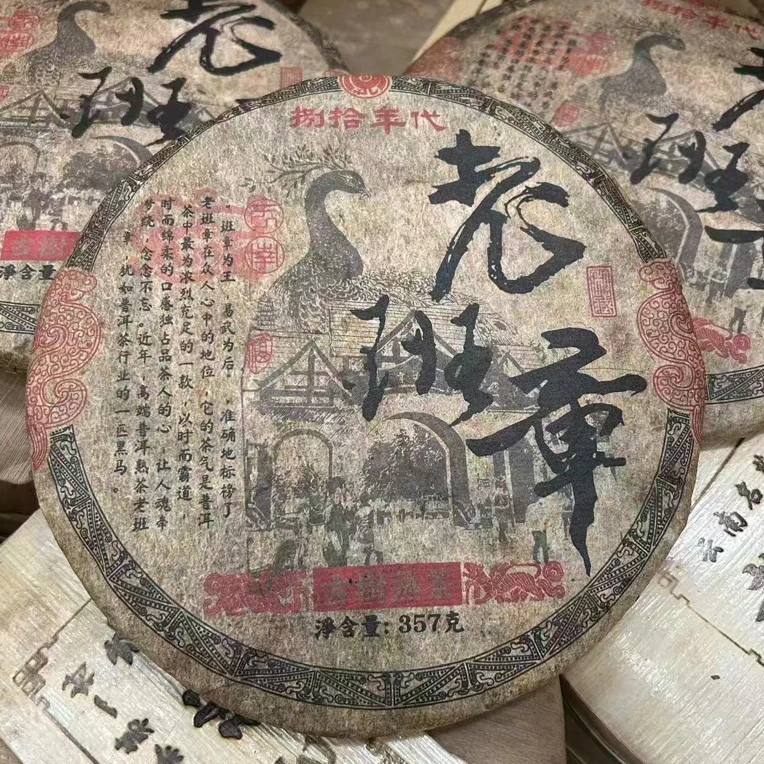 捌拾年代
老班章
“班章为王，易武为后”，准确地标榜了
老班章在众人心中的地位，它的茶气是普洱
茶中最为浓烈充足的一款，以时而霸道，
时而绵柔的口感独占品茶人的心，让人魂牵
梦绕，念念不忘。近年，高端普洱熟茶老班
章，犹如普洱茶行业的一匹黑马。
古樹熟茶
淨含量: 357克
老班
古樹
淨含量
捌拾年代
班
云南名